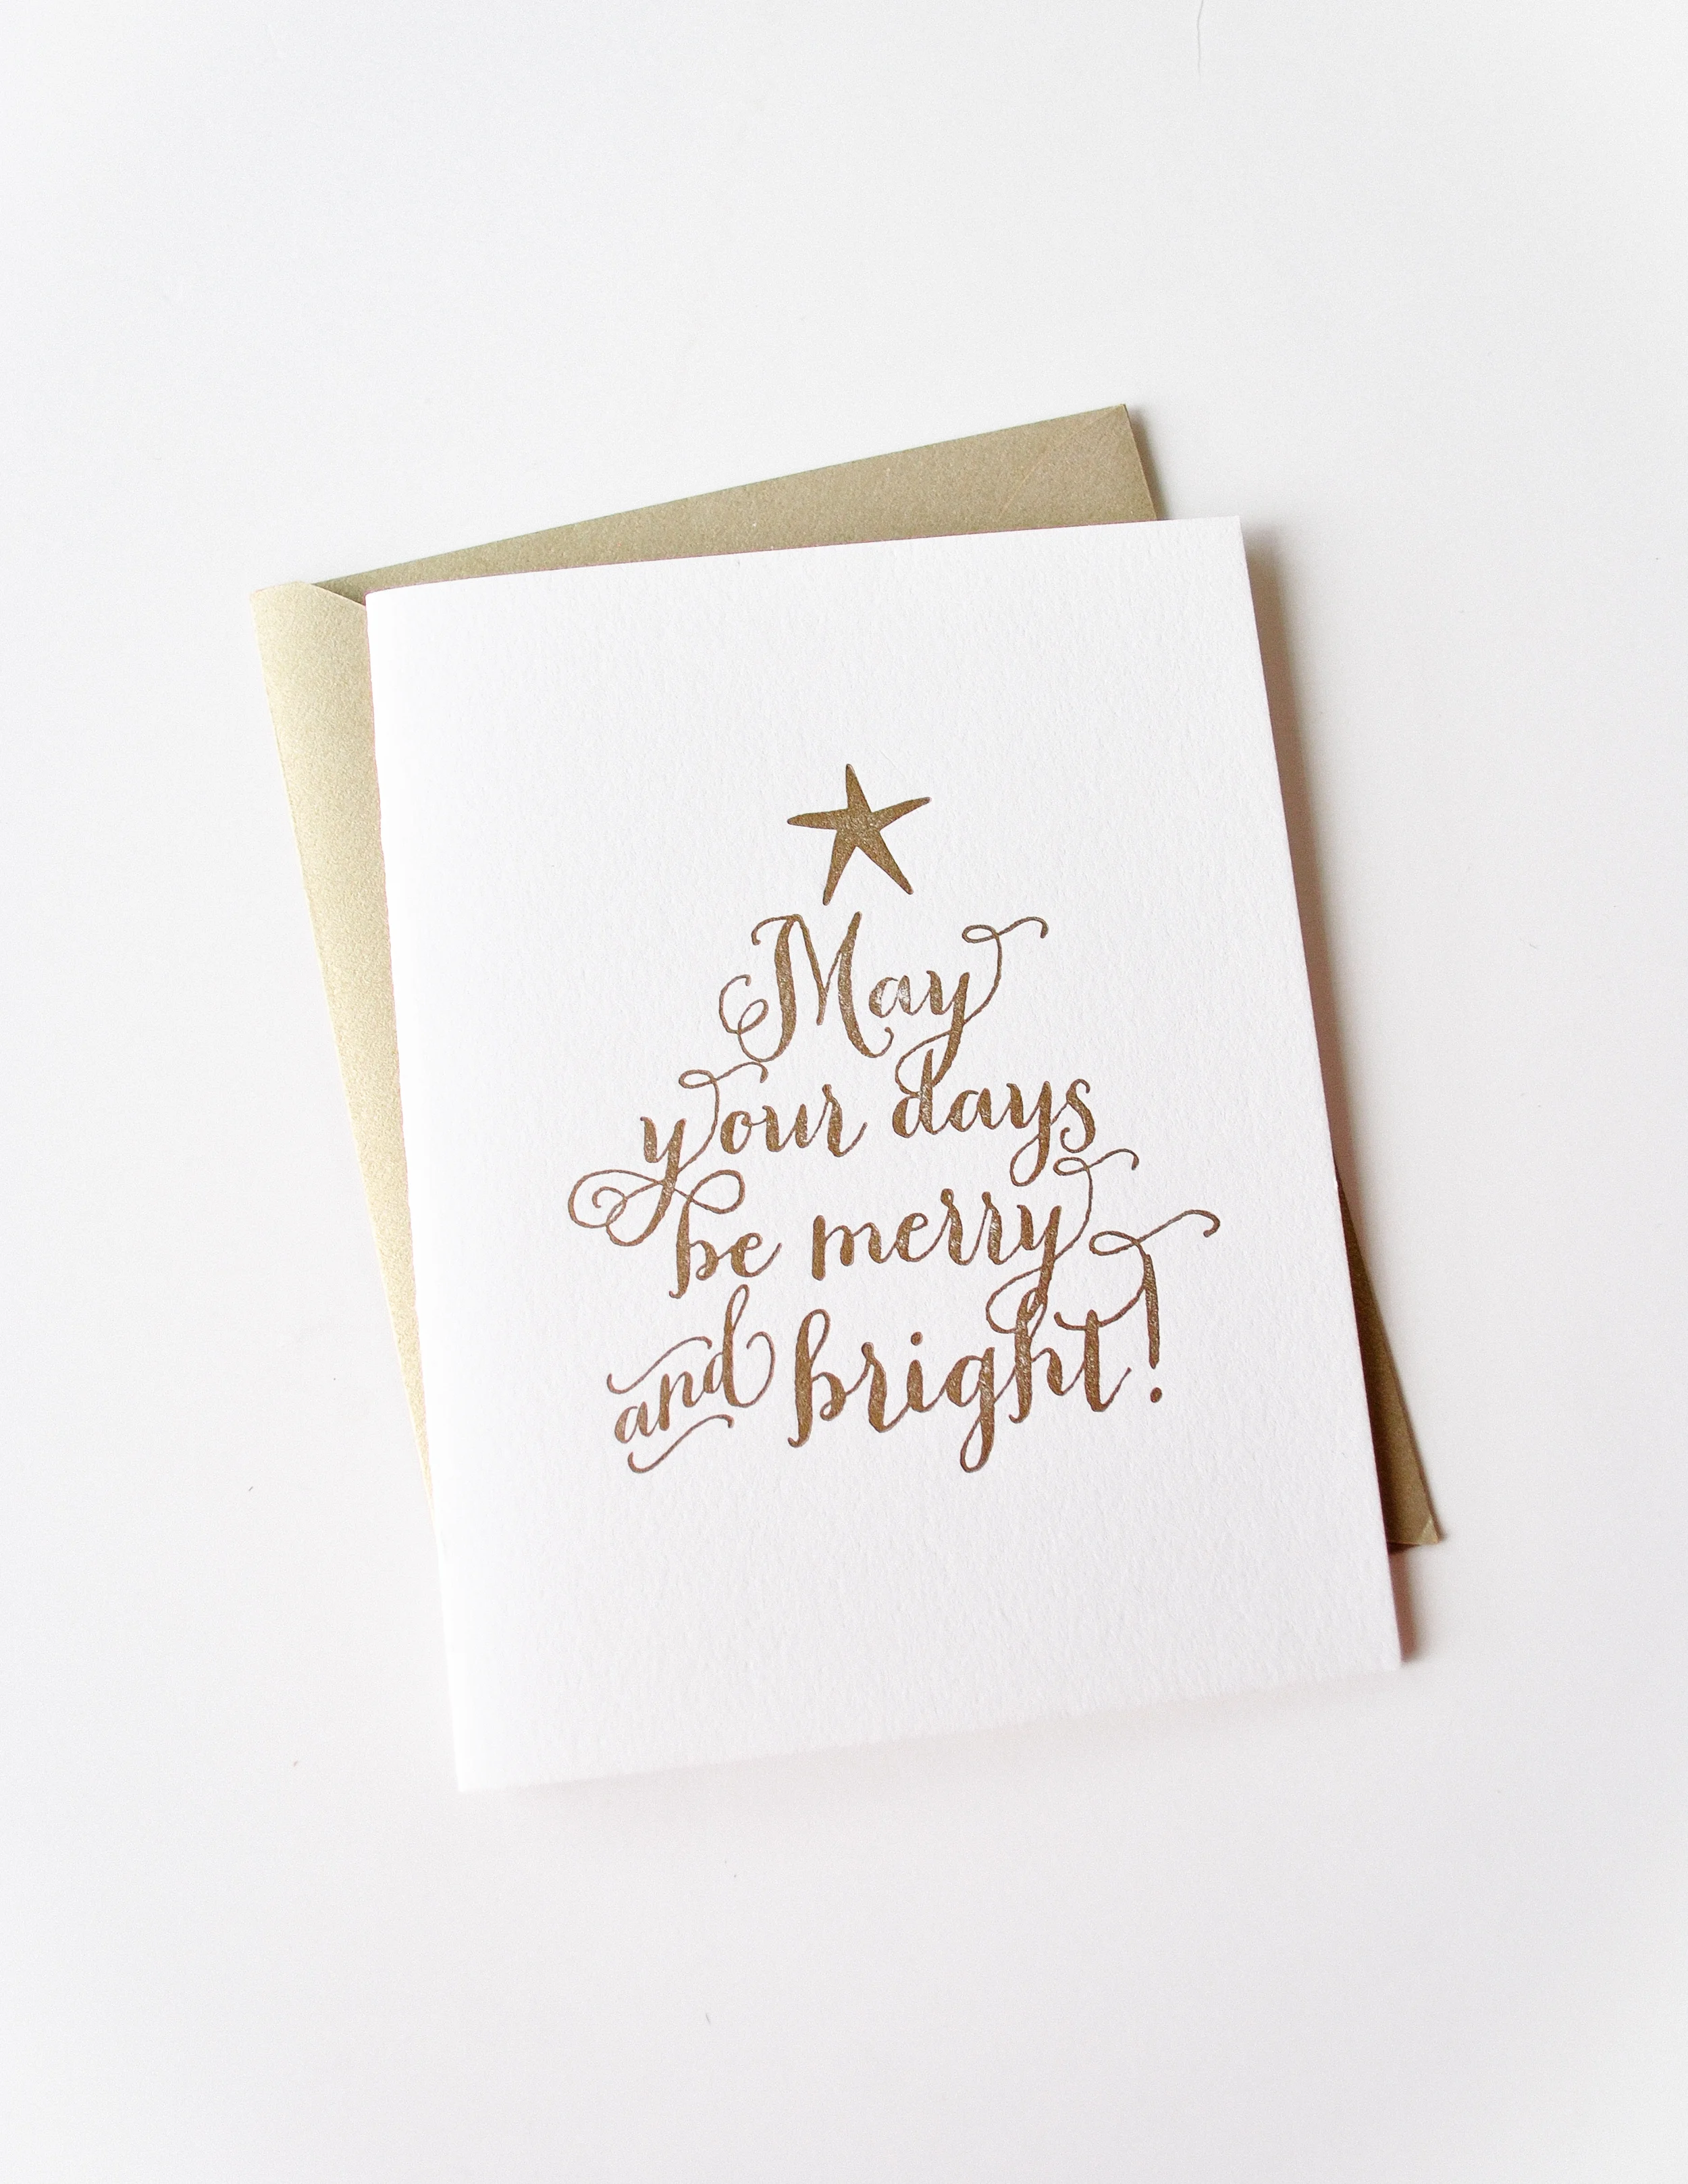 May
your days
be merry
and bright!